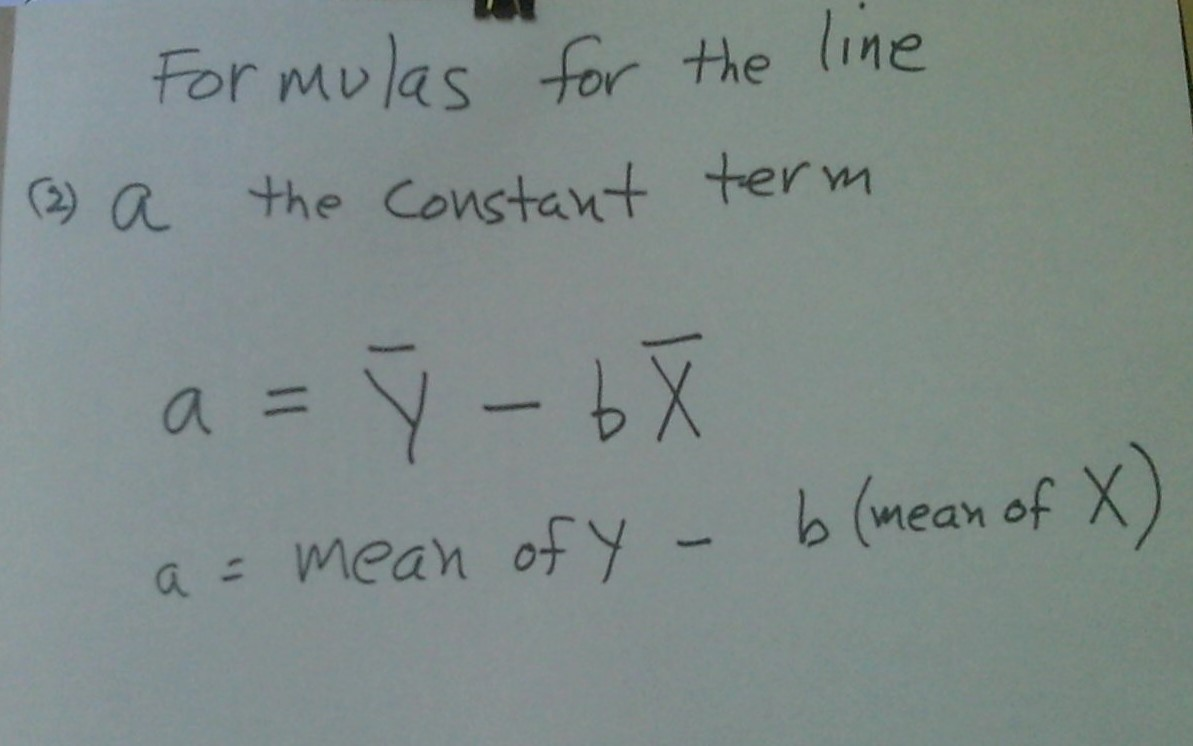 Formulas for the line
(2) a the constant term
a = Y̅ - bX̅
a = mean of Y - b (mean of X)